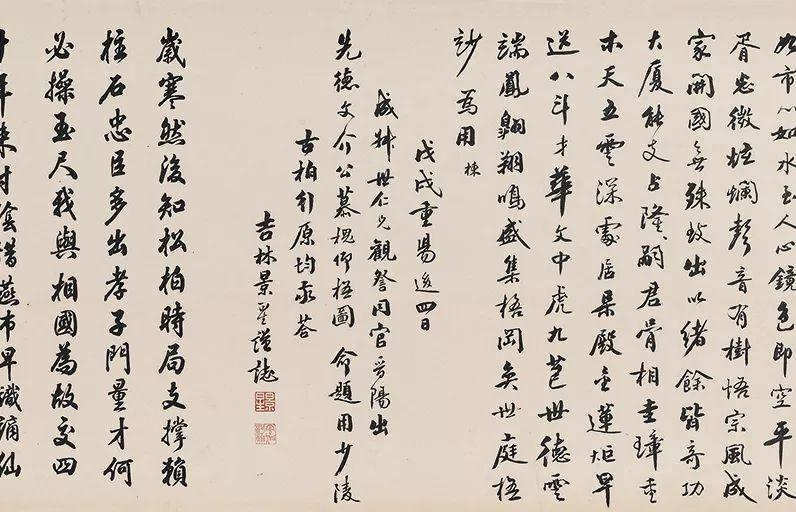 如市心如水玉人心鏡色即空平淡
胥忘微炷爛聲音有樹悟宗風成
家開國無殊致出以緒餘皆奇功
大廈能支占隆嗣君骨相圭璋重
木天五雲深處居杲殿金蓮炬早
送八斗才華文中虎九苞世德雲
端鳳翱翔鳴盛集梧岡奕世庭梧
為用棟
戊戌重陽後四日
成世仁兄觀詧同官晉陽出
先德文介公慕槐仰梧圖 命題用少陵
古柏行原均奉答
吉林景星謹誌
景星
歲寒然後知松柏時局支撐賴
柱石忠臣多出孝子門量才何
必操玉尺我與相國為故交四
十年來蔭燕市早識謫仙